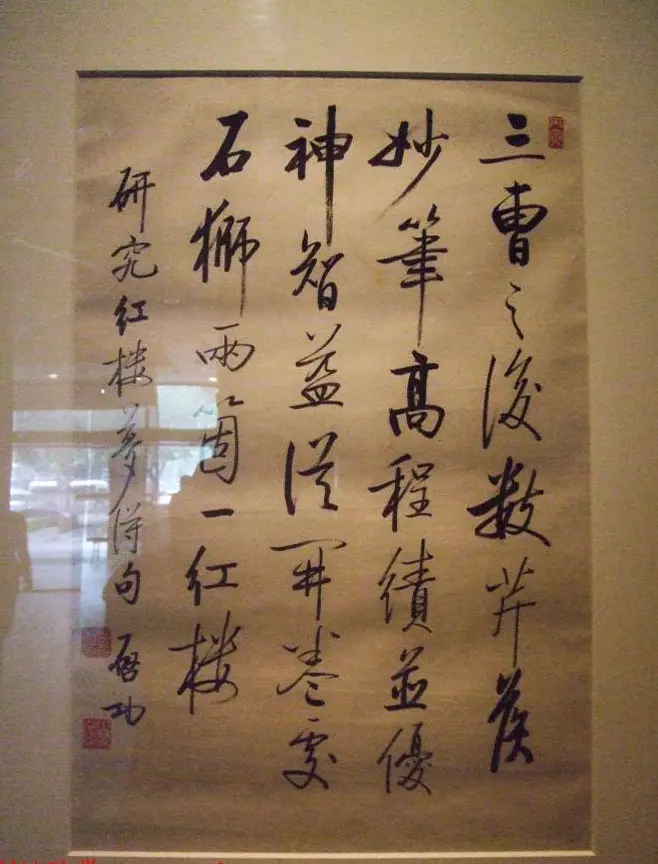 三曹之後数芹侯
妙筆高程績並優
神智益從開卷處
石獅兩箇一紅楼
研究红楼夢得句 啓功